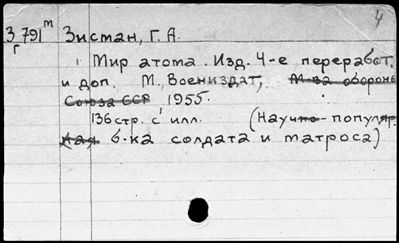 4
З 791 т Зисман, Г. А.
г
Мир атома. Изд. 4-е переработ.
и доп. М., Воениздат, М-ва обороны
Союза ССР 1955.
136 стр. с илл. (Научно-популяр.
кая б-ка солдата и матроса)